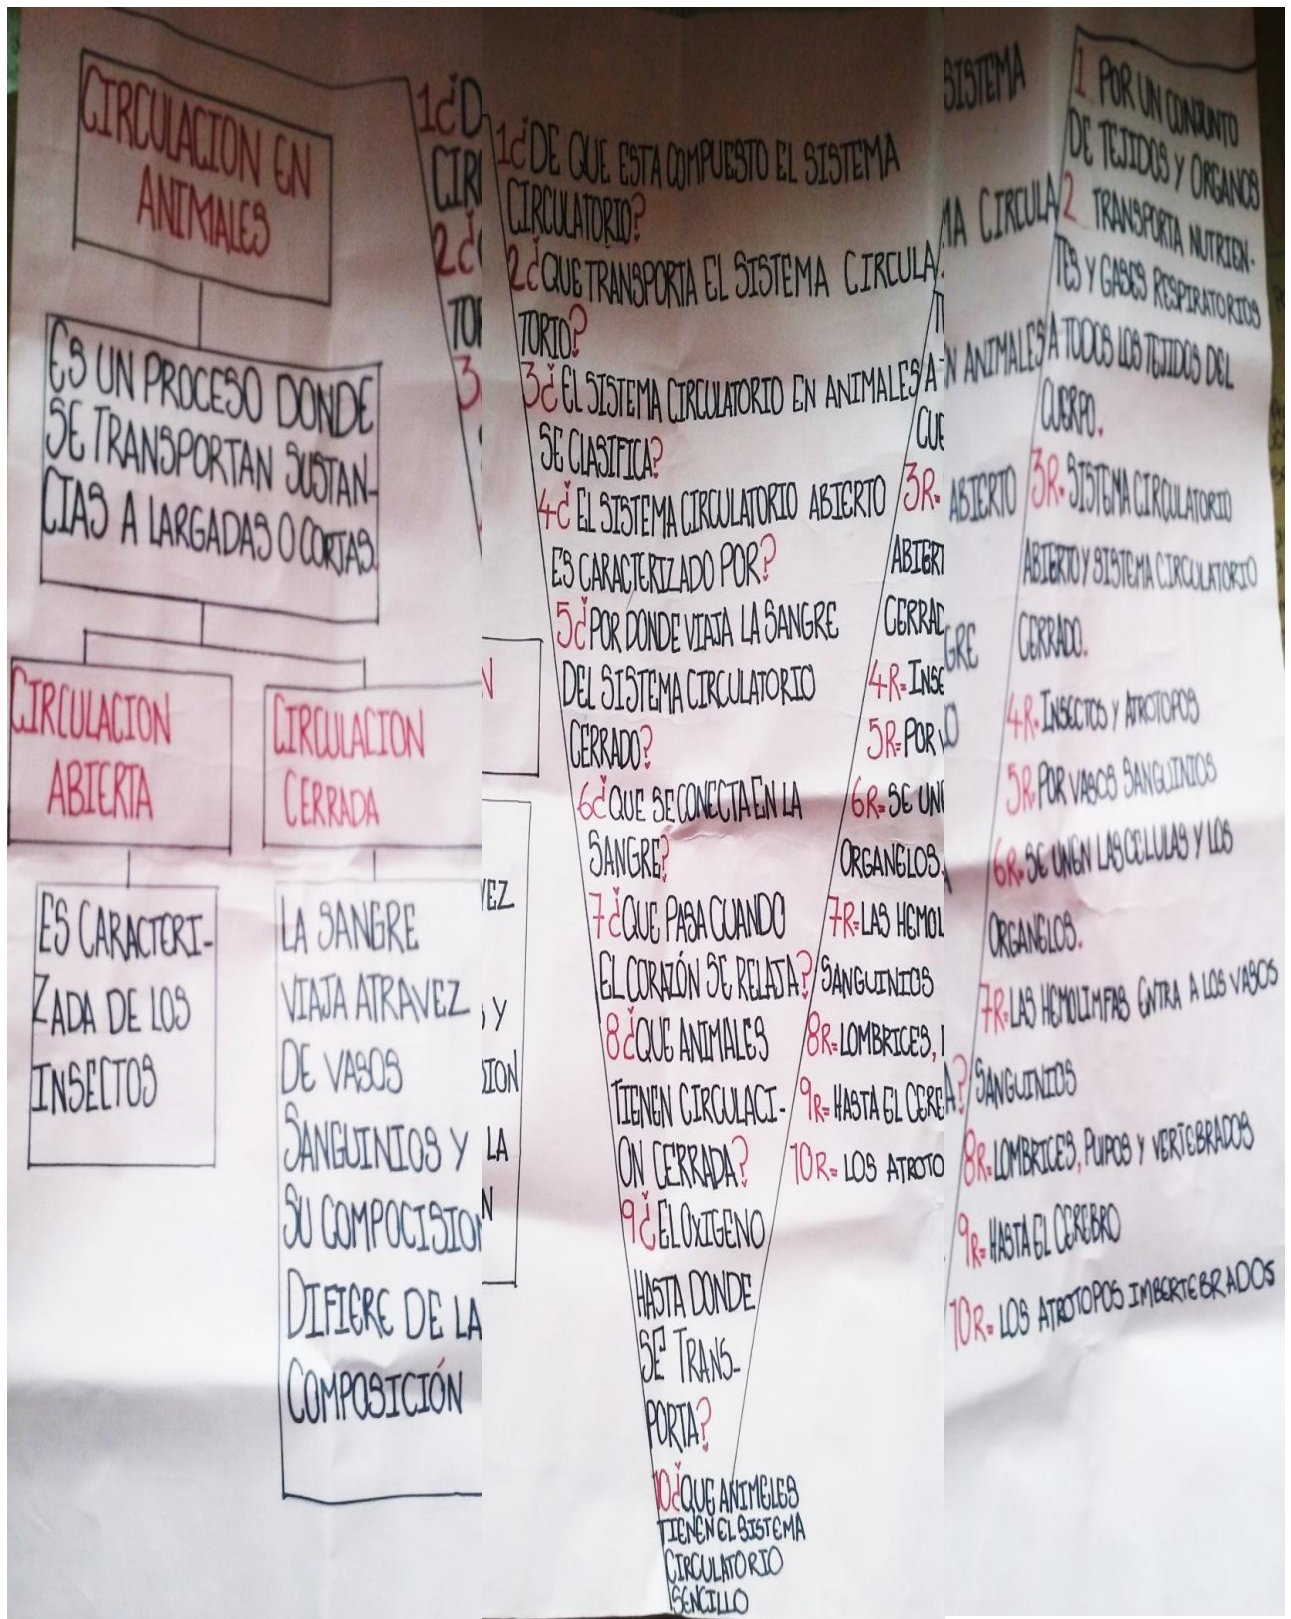 CIRCULACION EN
ANIMALES
ES UN PROCESO DONDE
SE TRANSPORTAN SUSTAN-
CIAS A LARGADAS O CORTAS
CIRCULACION
ABIERTA
CIRCULACION
CERRADA
ES CARACTERI-
ZADA DE LOS
INSECTOS
LA SANGRE
VIAJA ATRAVEZ
DE VASOS
SANGUINIOS Y
SU COMPOCISION
DIFIERE DE LA
COMPOSICIÓN
1¿DE QUE ESTA COMPUESTO EL SISTEMA
CIRCULATORIO?
2¿QUE TRANSPORTA EL SISTEMA CIRCULA
TORIO?
3¿EL SISTEMA CIRCULATORIO EN ANIMALES
SE CLASIFICA?
4¿EL SISTEMA CIRCULATORIO ABIERTO
ES CARACTERIZADO POR?
5¿POR DONDE VIAJA LA SANGRE
DEL SISTEMA CIRCULATORIO
CERRADO?
6¿QUE SE CONECTA EN LA
SANGRE?
7¿QUE PASA CUANDO
EL CORAZÓN SE RELAJA?
8¿QUE ANIMALES
TIENEN CIRCULACI-
ON CERRADA?
9¿EL OXIGENO
HASTA DONDE
SE TRANS-
PORTA?
10¿QUE ANIMELES
TIENEN EL SISTEMA
CIRCULATORIO
SENCILLO
1 POR UN CONJUNTO
DE TEJIDOS Y ORGANOS
2 TRANSPORTA NUTRIEN-
TES Y GASES RESPIRATORIOS
A TODOS LOS TEJIDOS DEL
CUERPO.
3R= SISTEMA CIRCULATORIO
ABIERTO Y SISTEMA CIRCULATORIO
CERRADO.
4R= INSECTOS Y ATROTOPOS
5R= POR VASOS SANGUINIOS
6R= SE UNEN LAS CELULAS Y LOS
ORGANELOS.
7R= LAS HEMOLIMFAS ENTRA A LOS VASOS
SANGUINIOS
8R= LOMBRICES, PULPOS Y VERTEBRADOS
9R= HASTA EL CEREBRO
10R= LOS ATROTOPOS IMBERTEBRADOS